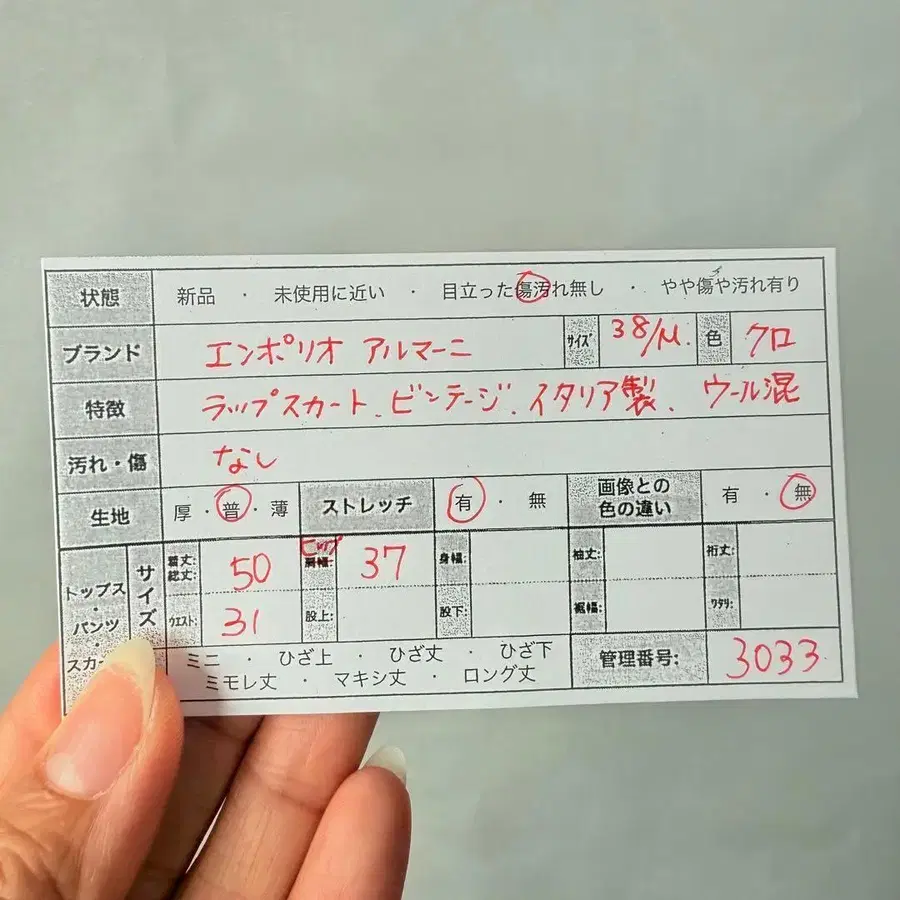 状態 新品 ・ 未使用に近い ・ 目立った傷汚れ無し ・ やや傷や汚れ有り
ブランド エンポリオ アルマーニ サイズ 38/M. 色 クロ
特徴 ラップスカート、ビンテージ、イタリア製、ウール混
汚れ・傷 なし
生地 厚・普・薄 ストレッチ 有・無 画像との色の違い 有・無
トップス・パンツ・スカー サイズ
着丈:総丈: 50 ヒップ 肩幅: 37 身幅: 袖丈: 裄丈:
ウエスト: 31 股上: 股下: 裾幅: ワタリ:
ミニ ・ ひざ上 ・ ひざ丈 ・ ひざ下
ミモレ丈 ・ マキシ丈 ・ ロング丈
管理番号: 3033